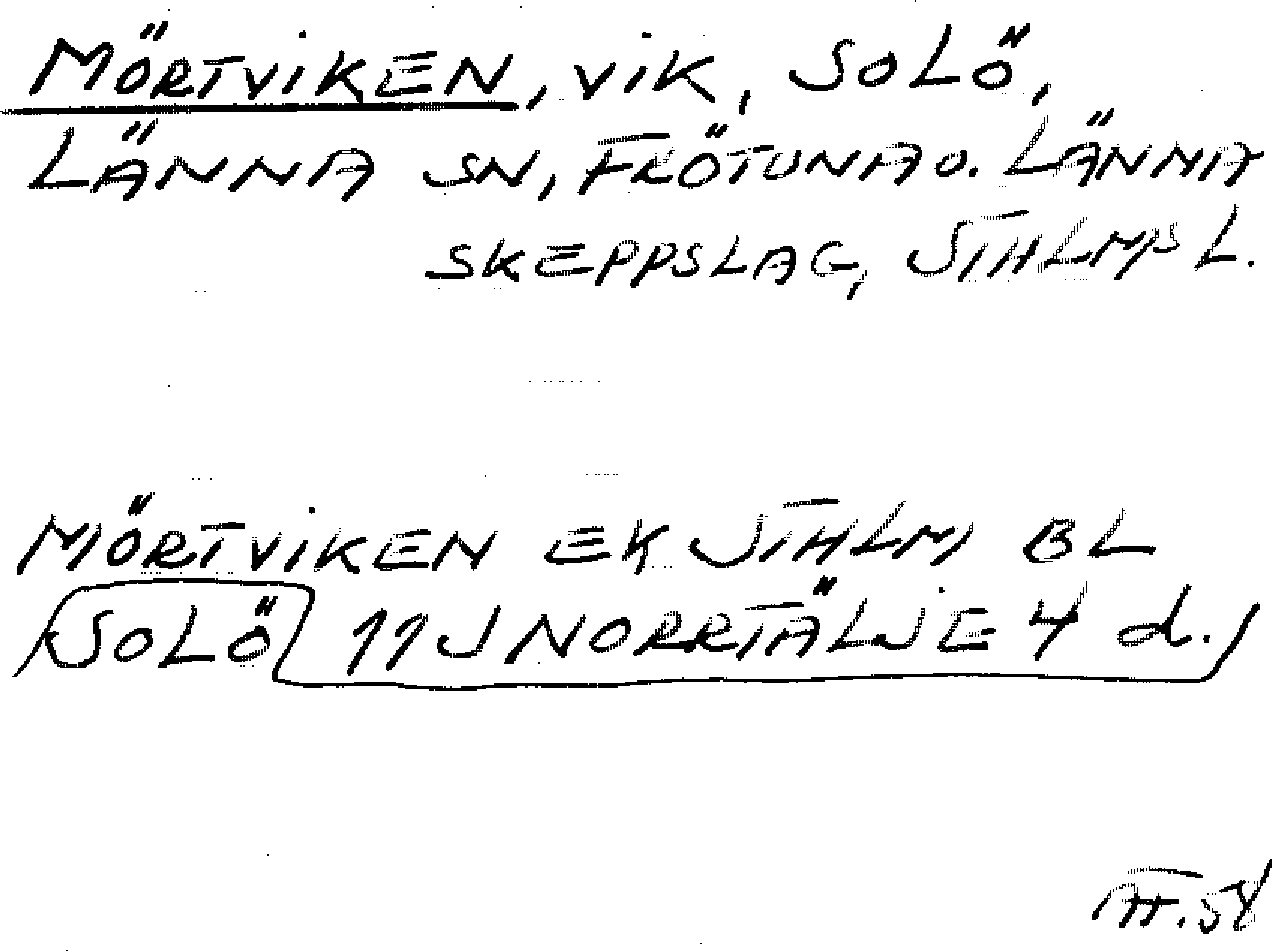 MÖRTVIKEN, VIK, SOLÖ,
LÄNNA SN, FRÖTUNA O. LÄNNA
SKEPPSLAG, STHLMS L.
MÖRTVIKEN EK STHLM BL
SOLÖ 11J NORRTÄLJE 4 d.